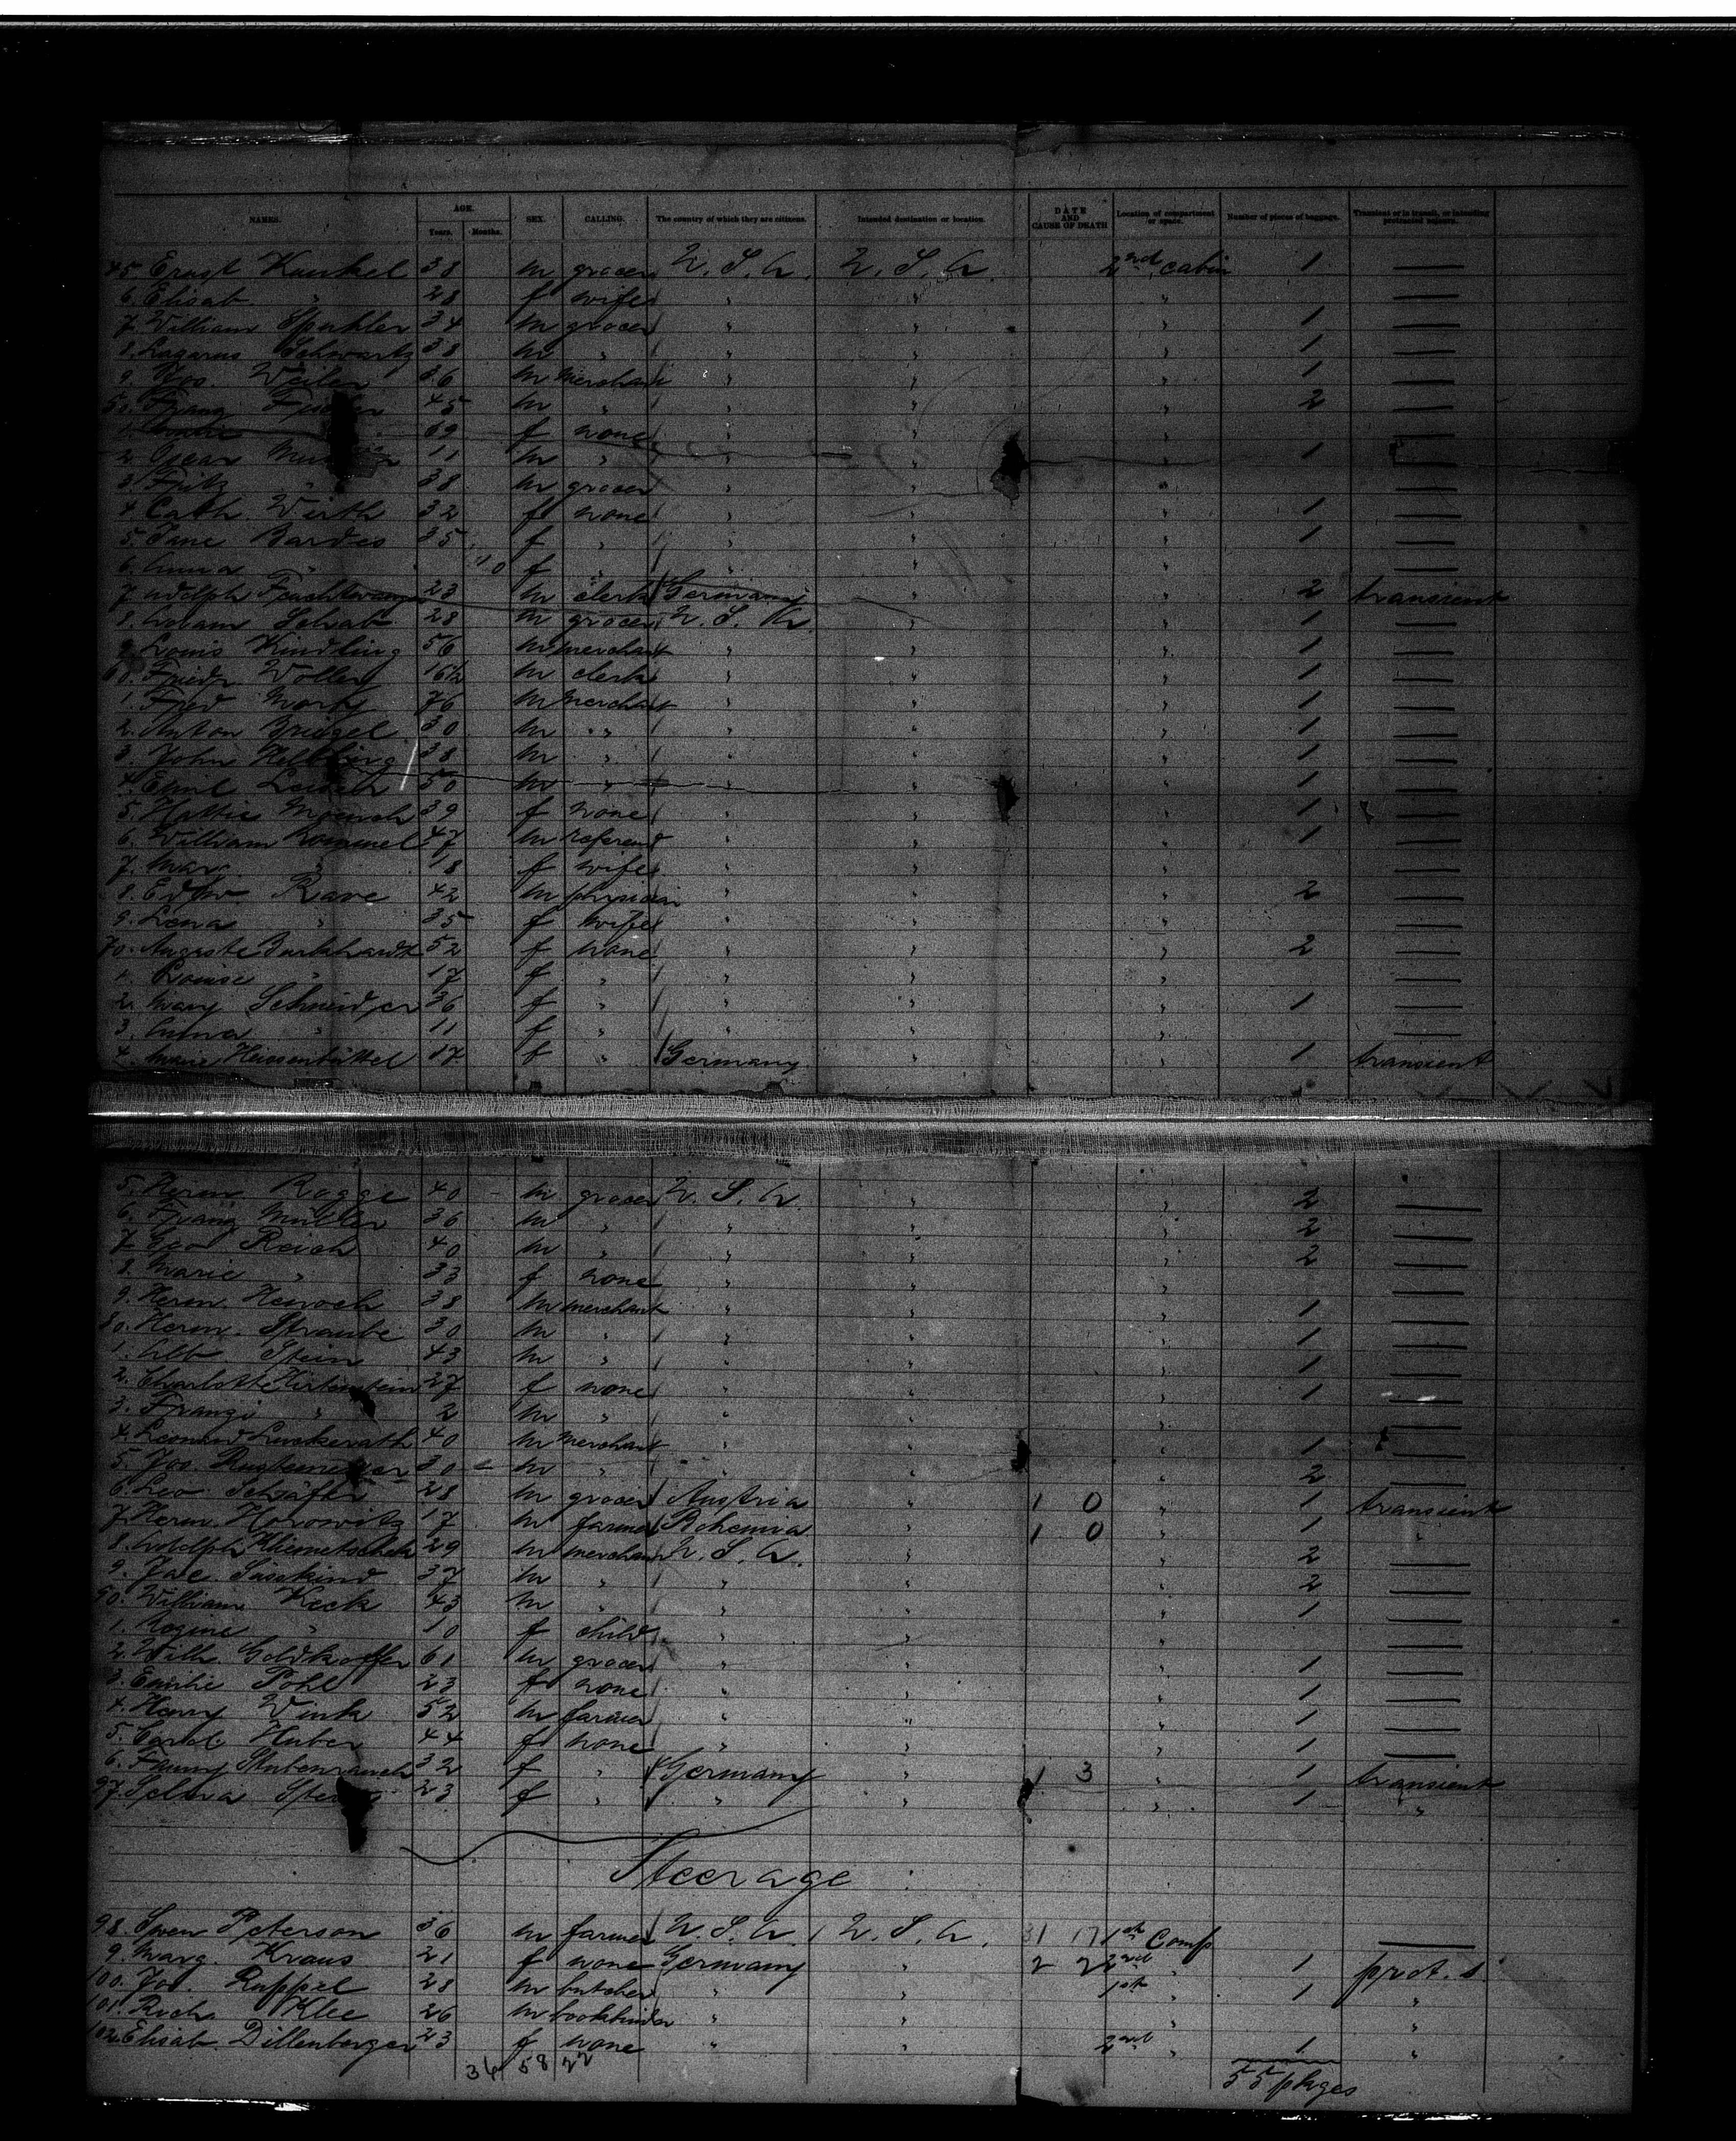 NAMES. AGE. Years. Months. SEX. CALLING. The country of which they are citizens. Intended destination or location. DATE AND CAUSE OF DEATH Location of compartment or space. Number of pieces of baggage. Transient or in transit, or intending protracted sojourn.
45. Ernst Kunkel 38 m grocer U. S. A. U. S. A. 2nd cabin 1 —
6. Elisab. " 28 f wife " " " —
7. William 34 m grocer " " " 1 —
8. Lazarus Schwartz 38 m " " " " 1 —
9. Jos. Weiler 36 m merchant " " " 1 —
50. Franz 45 m " " " " 2 —
69 f none " " " —
2. Oscar 11 m " " " " 1 —
3. Fritz " 38 m grocer " " " —
4. Cath. Wirth 32 f none " " " 1 —
5. Jane Bardes 35 f " " " " 1 —
6. Anna " 10 f " " " " —
7. Adolph Feuchtwanger 23 m clerk Germany " " 2 transient
8. Schab 28 m grocer U. S. A. " " 1 —
9. Louis Kindling 56 m merchant " " " 1 —
60. Friedr. 16½ m clerk " " " 1 —
1. Fred 76 m merchant " " " 1 —
2. Anton 30 m " " " " 1 —
3. John Helbling 38 m " " " " 1 —
4. Emil 50 m " " " " 1 —
5. Hattie 39 f none " " " 1 —
6. William Rommel 47 m " " " 1 —
7. " 18 f wife " " " —
8. Rave 42 m physician " " " 2 —
9. Lena " 35 f wife " " " —
70. Auguste Burkhardt 52 f none " " " 2 —
1. Louise " 17 f " " " " —
2. Mary Schneider 36 f " " " " 1 —
3. Anna " 11 f " " " " —
4. Marie Heissenbüttel 17 f " Germany " " 1 transient
5. Herm. Rogge 40 m grocer U. S. A. " " 2 —
6. Franz Müller 36 m " " " " 2 —
7. Geo Reich 40 m " " " " 2 —
8. Marie " 33 f none " " " —
9. Herm. 38 m merchant " " " 1 —
80. Herm. Straube 30 m " " " " 1 —
1. Alb. Stein 43 m " " " " 1 —
2. Charlotte 27 f none " " " 1 —
3. Franzi " 2 m " " " " —
4. Leonard Luckerath 40 m merchant " " " 1 —
5. Jos. 30 m " " " " 2 —
6. Leo 28 m grocer Austria " 1 0 " 1 transient
7. Herm. Horowitz 17 m farmer Bohemia " 1 0 " 1 "
8. Adolph Kliemetschek 29 m merchant U. S. A. " " 2 —
9. Jac. Süsskind 37 m " " " " 2 —
90. William Keck 43 m " " " " 1 —
1. Rosine " 10 f child " " " —
2. Wilh. 61 m grocer " " " 1 —
3. Emilie Pohl 23 f none " " " 1 —
4. Henry Wink 52 m farmer " " " 1 —
5. Carol. Huber 44 f none " " " 1 —
6. Fanny Stubenrauch 32 f " Germany " 1 3 " 1 transient
97. Selma 23 f " " " " 1 "
Steerage
98. Swen Peterson 36 m farmer U. S. A. U. S. A. 31 17 1st Comp —
9. Marg. Kraus 21 f none Germany " 2 2 2nd " 1 prot. s.
100. Jos. Ruppel 28 m butcher " " 1st " 1 "
101. Rich. Klee 26 m bookbinder " " " "
102. Elisab. Dillenberger 23 f none " " 2nd " 1 "
34 58 22 55 pkges